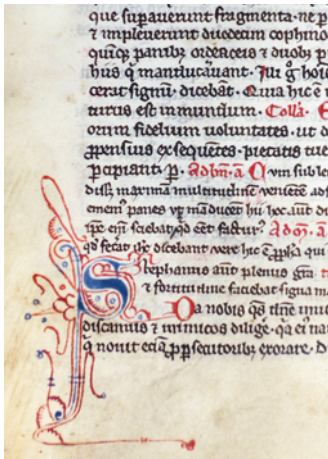 que supauerunt fragmenta. ne p
⁊ impleuerunt duodecim cophino
quinq; panib; ordeaceis ⁊ duob; p
hus q manducauant. Illi g ho
cerat signū. dicebāt. Quia hic ē
turus est in mundum. Colla.
orum fidelium uoluntates. ut d
ppensius exsequētes. pietatis tue
pcipiant. p. Ad bn̄. a Cum suble
diss; maxima multitudinē uenietē ad
emem panes vt māducēt hii hoc aut d
ipe eni sciebat qd eēt factur. Ad bn̄. a
qd fecat ihc dicebant uere hic ē ppha qui
Stephanus aūt plenus grā
⁊ fortitudine faciebat signa m
Da nobis qs dn̄e imit
discamus ⁊ inimicos dilige. qa ei na
q nouit eciā p psecutorib; exorare. D